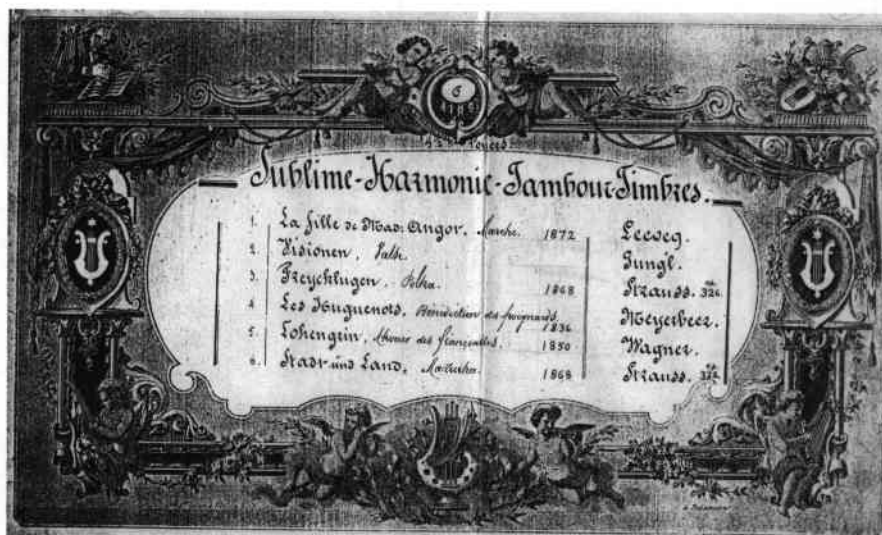 6
Sublime-Harmonie-Tambour-Timbres.
1. La fille de Mad: Angor. Marche. 1872 Lecoeg.
2. Visionen. Valse. Jung'l.
3. Freyeklugen. Polka. 1868 Strauss. No. 326.
4. Les Huguenots. Bénédiction des poignards. 1836 Meyerbeer.
5. Lohengrin. Choeur des fiançailles. 1850 Wagner.
6. Stadt und Land. Mazurka. 1868 Strauss. No. 322.